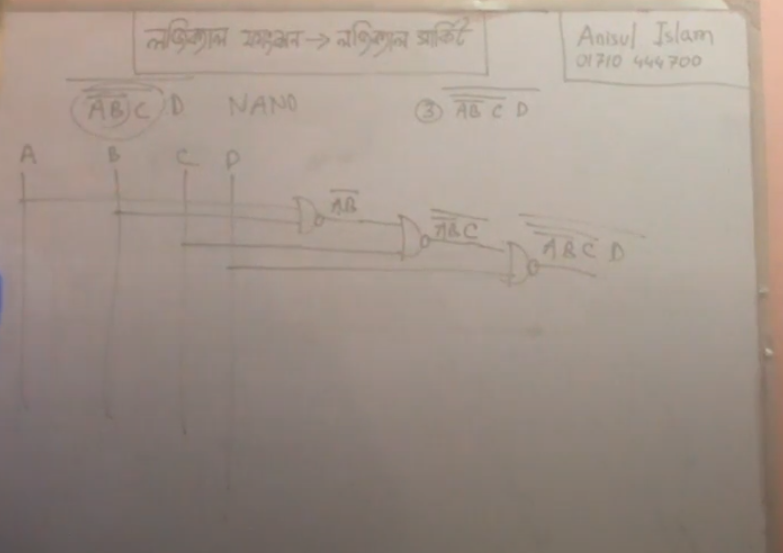 লজিক্যাল ফাংশন → লজিক্যাল সার্কিট
Anisul Islam
01710 444700
A̅B̅C̅ D NAND
③ A̅B̅ C D
A B C D
A̅B̅
A̅B̅C̅
A̅B̅C̅ D